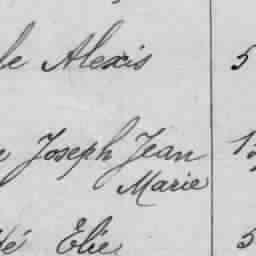 le Alexis 5
Joseph Jean
Marie
é Elie 5